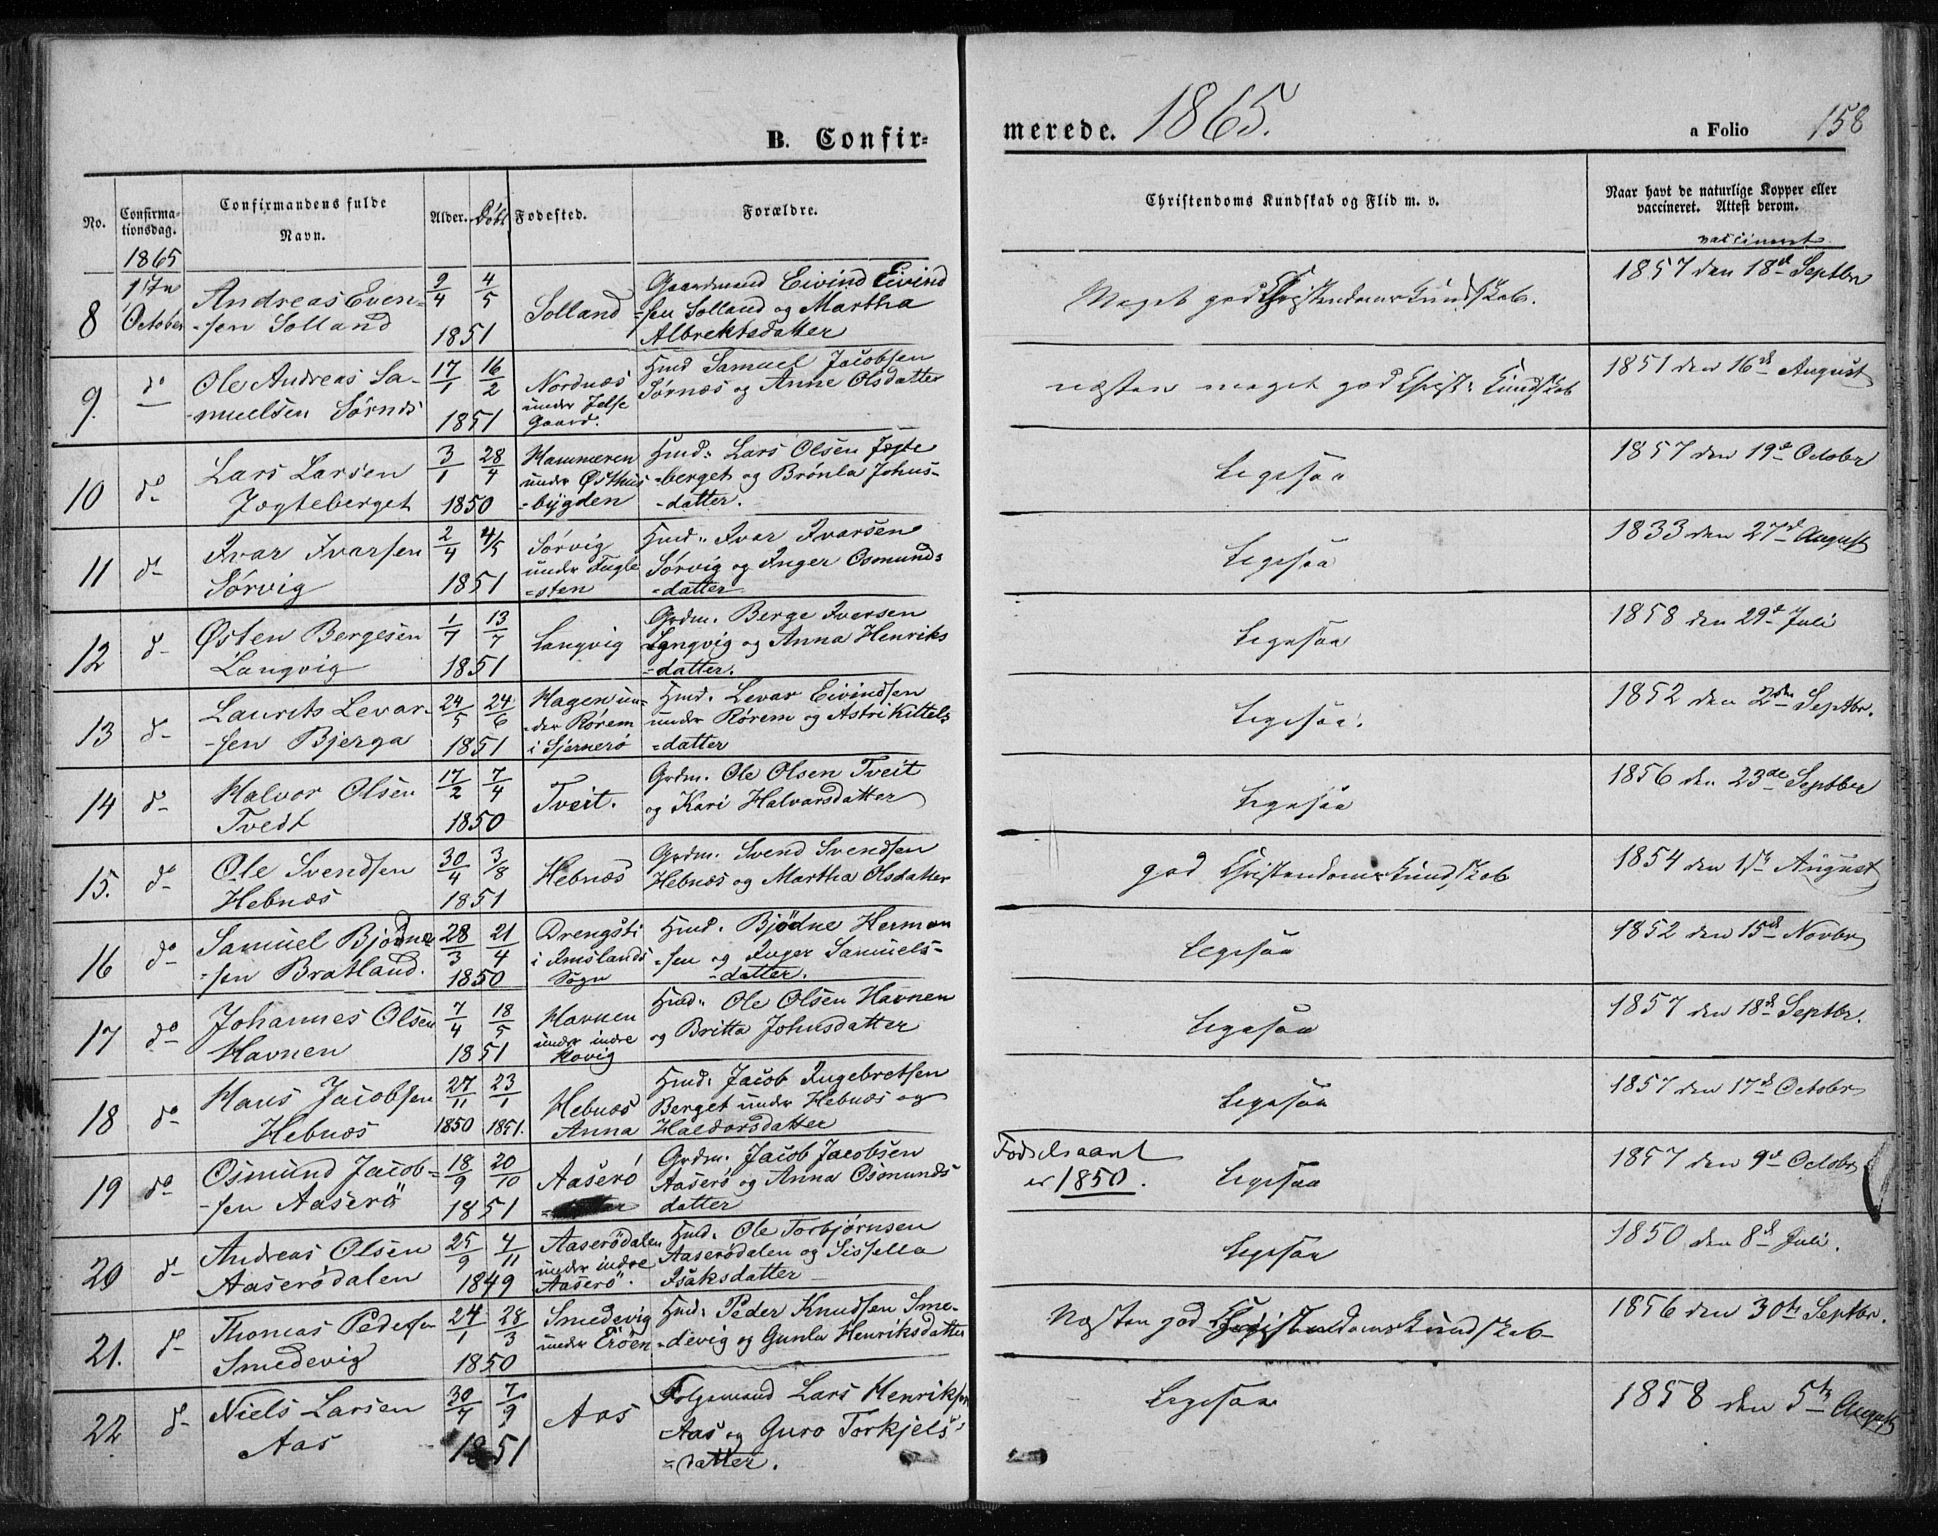 B. Confir-
merede. 1865.
a Folio 158
No.
Confirma-
tionsdag.
Confirmandens fulde
Navn.
Alder.
Døbt
Fødested.
Forældre.
Christendoms Kundskab og Flid m. v.
Naar havt de naturlige Kopper eller
vaccineret. Attest derom.
vaccineret
1865
8
1ste
October
Andreas Even-
-sen Solland
9/4 4/5
1851
Solland
Gaardmand Eivind Eivind
-sen Solland og Martha
Albrektsdatter
Meget god Christendomskundskab.
1857 den 18de Septbr
9.
do
Ole Andreas Sa-
-muelsen Sørnæs
17/1 16/2
1851
Nordnæs
under Jelse
Gaard.
Hmd Samuel Jacobsen
Sørnæs og Anne Olsdatter
næsten meget god Christ: Kundskab
1851 den 16de August
10
do
Lars Larsen
Jogteberget
3/1 28/4
1850
Hammeren
under Østhus
-bygden
Hmd: Lars Olsen Jogte
-berget og Brönla Johns-
-datter.
Ligesaa
1857 den 19de Octobr
11
do
Ivar Ivarsen
Sørvig
2/4 4/5
1851
Sørvig
under Fugle
-sten
Hmd: Ivar Ivarsen
Sørvig og Inger Osmunds
-datter
Ligesaa
1833 den 27de August
12
do
Østen Bergesen
Langvig
1/7 13/7
1851
Langvig
Grdm. Berge Iversen
Langvig og Anna Henriks
-datter.
Ligesaa
1858 den 29de Juli
13
do
Laurits Levar-
-sen Bjerga
24/5 24/6
1851
Hagen un-
-der Rørem
i Sjernerö
Hmd. Levar Eivindsen
under Rørem og Astri Kittels
-datter
Ligesaa.
1852 den 2den Septbr.
14
do
Halvor Olsen
Tvedt
17/2 7/4
1850
Tveit.
Grdm. Ole Olsen Tveit
og Kari Halvorsdatter
Ligesaa
1856 den 23de Septbr
15.
do
Ole Svendsen
Hebnæs
30/4 3/8
1851
Hebnæs
Grdm. Svend Svendsen
Hebnæs og Martha Olsdatter
god Christendomskundskab
1854 den 1ste August
16
do
Samuel Bjødne
-sen Bratland.
28/3 21/4
1850
Drengsti
i Imslands
Sogn
Hmd. Bjödne Herman
-sen og Inger Samuels-
-datter.
Ligesaa
1852 den 15de Novbr
17
do
Johannes Olsen
Havnen
7/4 18/5
1851
Havnen
under indre
Hovig
Hmd: Ole Olsen Havnen
og Britta Johnsdatter
Ligesaa
1857 den 18de Septbr.
18
do
Hans Jacobsen
Hebnæs
27/11 23/1
1850 1851.
Hebnæs
Anna
Hmd: Jacob Ingebretsen
Berget under Hebnæs og
Haldorsdatter
Ligesaa
1857 den 17de Octobr
19
do
Osmund Jacob-
-sen Aaserö
18/9 20/10
1851
Aaserö
Grdm. Jacob Jacobsen
Aaserö og Anna Osmunds
datter
Fødselsaaret
er 1850.
Ligesaa
1857 den 9de Octobr
20
do
Andreas Olsen
Aaserødalen
25/9 4/11
1849
Aaserödalen
under indre
Aaserö.
Hmd. Ole Torbjørnsen
Aaserödalen og Sissella
Isaksdatter
Ligesaa
1850 den 8de Juli.
21.
do
Thomas Pedersen
Smedevig
24/1 28/3
1850
Smedevig
under Eröen
Hmd: Peder Knudsen Sme-
-devig og Gunla Henriksdatter
Næsten god Christendomskundskab
1856 den 30te Septbr.
22
do
Niels Larsen
Aas
30/7 7/9
1851
Aas
Folgemand Lars Henriksen
Aas og Guro Torkjels
-datter.
Ligesaa
1858 den 5te August